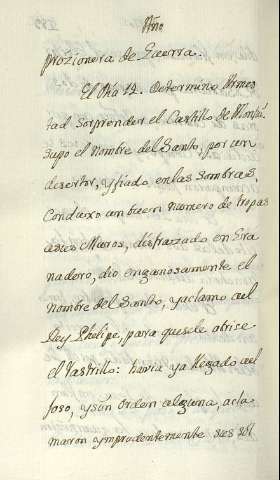 Año
prozionera de Guerra.
El Dia 12. Determino Armes
tad Sorprender el Castillo de Monjui
supo el Nombre del Santo, por un
desertor, y fiado en las Sombras,
Conduxo un buen numero de tropas
asus Muros, disfrazado en Gra
nadero, dio enganosamente el
Nombre del Santo, yaclamo ael
Rey Phelipe, para quese le abriee
el Castillo: havia ya llegado ael
foso, y sin orden alguna, acla
maron ymprudentemente sus sol